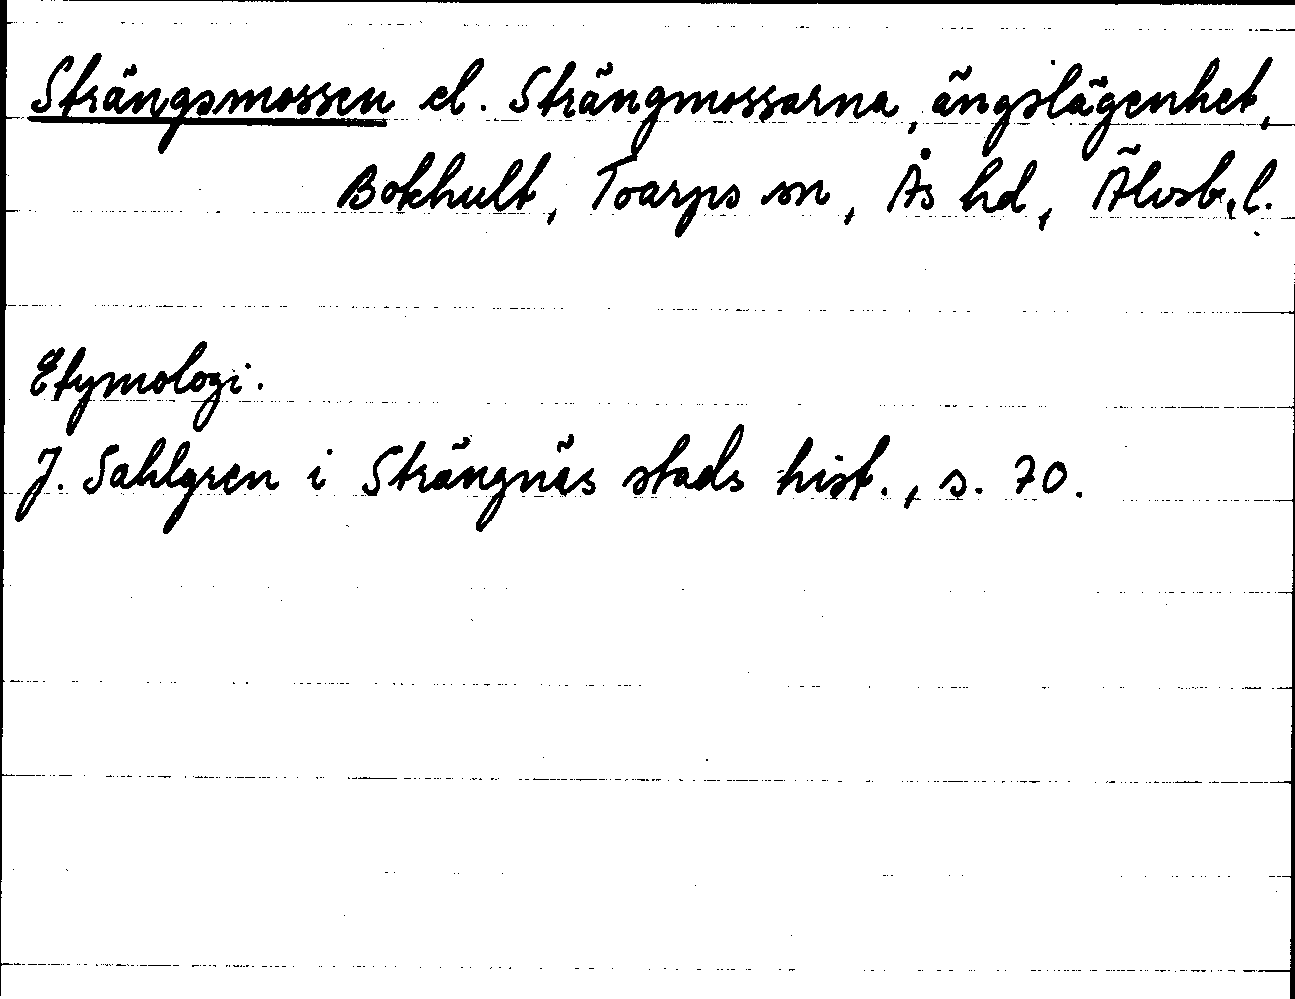 Strängsmossen el. Strängmossarna, ängslägenhet,
Bokhult, Toarps sn, Ås hd, Älvsb. l.
Etymologi.
J. Sahlgren i Strängnäs stads hist., s. 70.